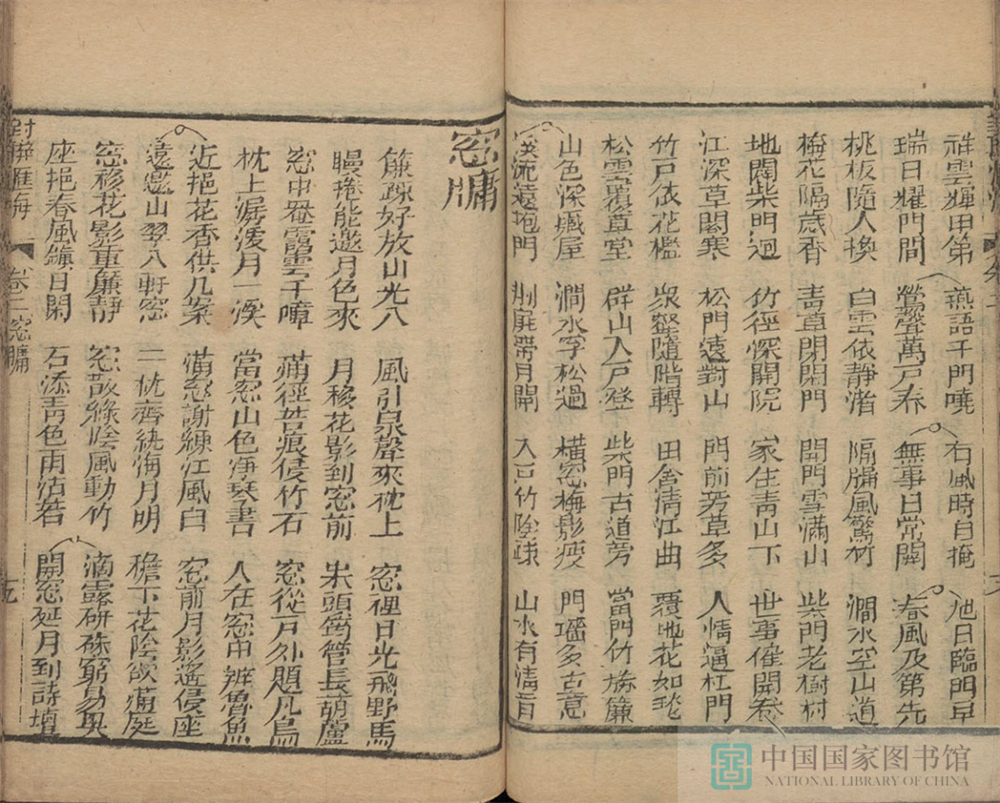 祥雲輝甲第 燕語千門曉 右風時自掩 旭日臨門早
瑞日耀門閭 鶯聲萬戶春 無事日常開 春風及第先
桃板隨人換 白雲依靜渚 隔牖風驚竹 澗水空山道
梅花隔歲香 青草閉閑門 開門雪滿山 柴門老樹村
地闊柴門迥 竹徑深開院 家住青山下 世事催開卷
江深草閣寒 松門遠對山 門前芳草多 人情逼杠門
竹戶依花檻 衆壑隨階轉 田舍清江曲 覆地花如毯
松雲覆草堂 群山入戶登 柴門古道旁 當門竹旆簾
山色深藏屋 澗水穿松過 橫窓梅影瘦 門墻多古意
溪流遠抱門 荊扉帶月開 入戶竹陰疎 山水有清音
窓牖
簾疎好放山光入 風引泉聲來枕上 窓裡日光飛野馬
幔捲能邀月色來 月移花影到窓前 床頭筠管長葫蘆
窓中罨靄雲千嶂 滿徑苔痕侵竹石 窓從戶外題凡鳥
枕上潺湲月一溪 當窓山色淨琴書 人在窓中辨魯魚
近挹花香供几案 滿窓謝練江風白 窓前月影遙侵座
遠邀山翠入軒窓 一枕齊紈海月明 檐下花陰欲滿庭
窓移花影重簾靜 窓敲綠陰風動竹 滴露研硃窮易奧
座挹春風鎮日閑 石添青色雨沾苔 開窓延月到詩壇
對聯匯海 卷二 窓牖
中国国家图书馆
NATIONAL LIBRARY OF CHINA